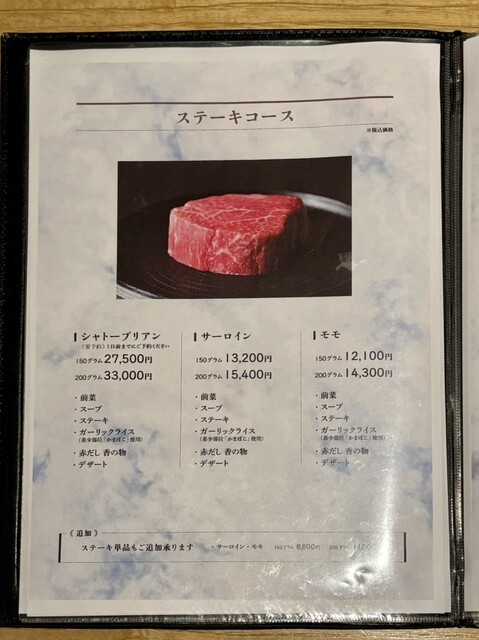 ステーキコース
※税込価格
シャトーブリアン
《要予約》1日前までにご予約ください
150グラム 27,500円
200グラム 33,000円
・前菜
・スープ
・ステーキ
・ガーリックライス
（希少部位「かまぼこ」使用）
・赤だし 香の物
・デザート
サーロイン
150グラム 13,200円
200グラム 15,400円
・前菜
・スープ
・ステーキ
・ガーリックライス
（希少部位「かまぼこ」使用）
・赤だし 香の物
・デザート
モモ
150グラム 12,100円
200グラム 14,300円
・前菜
・スープ
・ステーキ
・ガーリックライス
（希少部位「かまぼこ」使用）
・赤だし 香の物
・デザート
《 追加 》
ステーキ単品もご追加承ります ・サーロイン・モモ 150グラム 8,800円 200グラム